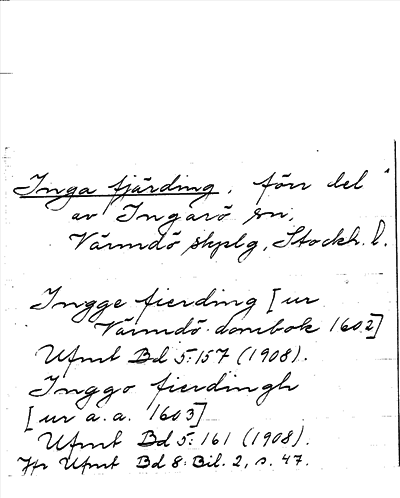 Inga fjärding, förr del
av Ingarö sn,
Värmdö skplg, Stockh. l.
Ingge fierding [ur
Värmdö dombok 1602]
Ufmt Bd 5:157 (1908).
Inggo fierdingh
[ur a.a. 1603]
Ufmt Bd 5:161 (1908).
Jfr Ufmt Bd 8: Bil. 2, s. 47.